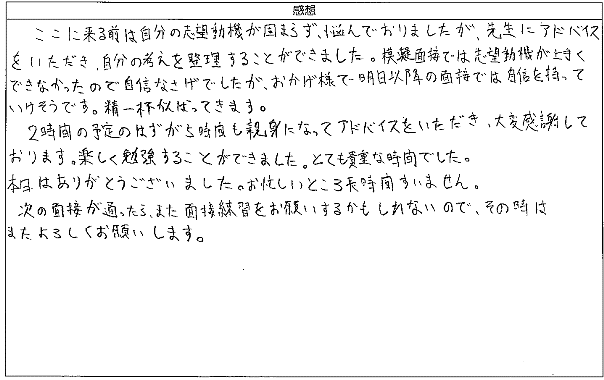 感想
ここに来る前は自分の志望動機が固まらず、悩んでおりましたが、先生にアドバイス
をいただき、自分の考えを整理することができました。模擬面接では志望動機が上手く
できなかったので自信なさげでしたが、おかげ様で明日以降の面接では自信を持って
いけそうです。精一杯がんばってきます。
2時間の予定のはずが5時間も親身になってアドバイスをいただき、大変感謝して
おります。楽しく勉強することができました。とても貴重な時間でした。
本日はありがとうございました。お忙しいところ長時間すいません。
次の面接が通ったら、また面接練習をお願いするかもしれないので、その時は
またよろしくお願いします。